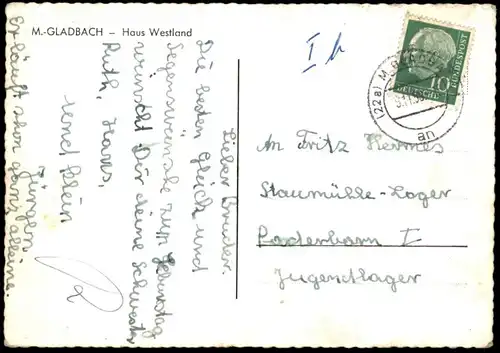 M.-GLADBACH – Haus Westland
Lieber Bruder.
Die besten Glück und
Segenswünsche zum Geburtstag
wünscht Dir deine Schwester
Ruth, Hans,
und klein
Jürgen
Er läuft schon ganz alleine.
I b
(22a) M.GLADB
an
DEUTSCHE BUNDESPOST
10
An Fritz Hermes
Staumühle-Lager
Paderborn I
Jugendlager